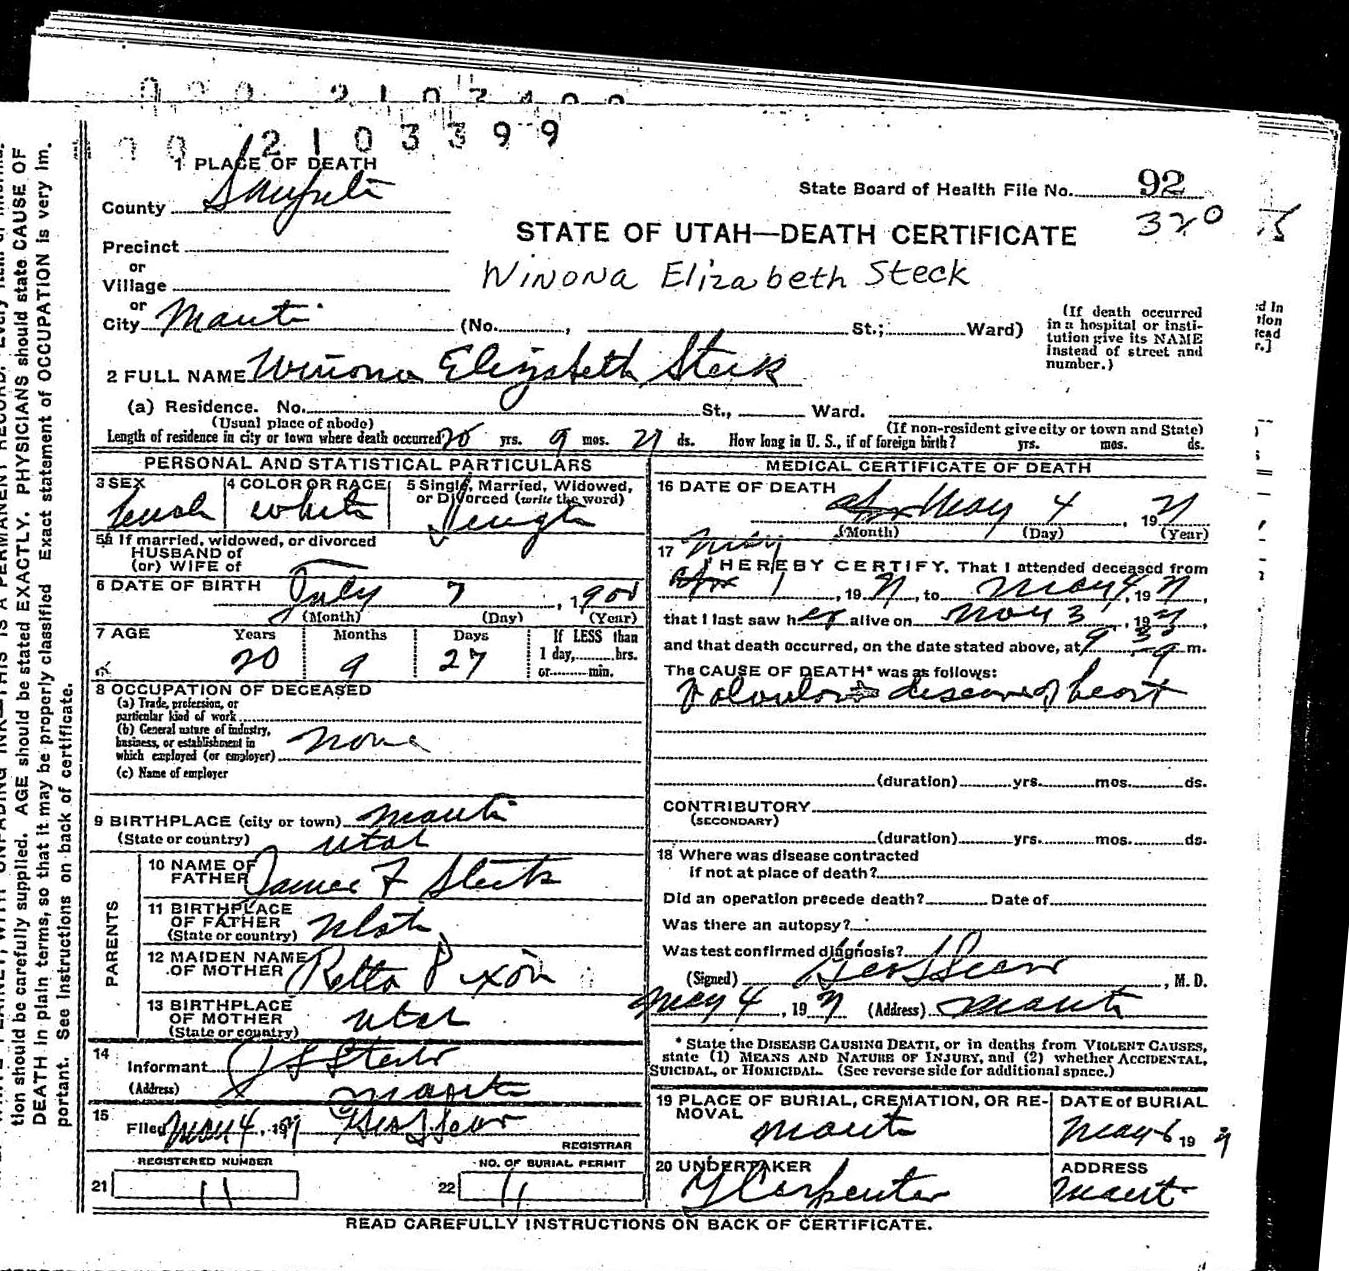 2103399
1 PLACE OF DEATH
County Sanpete
State Board of Health File No. 92
320
Precinct
or
Village
or
City Manti (No. , St.; Ward)
STATE OF UTAH—DEATH CERTIFICATE
Winona Elizabeth Steck
(If death occurred
in a hospital or insti-
tution give its NAME
instead of street and
number.)
2 FULL NAME Winona Elizabeth Steck
(a) Residence. No. St., Ward.
(Usual place of abode) (If non-resident give city or town and State)
Length of residence in city or town where death occurred 20 yrs. 9 mos. 27 ds. How long in U. S., if of foreign birth? yrs. mos. ds.
PERSONAL AND STATISTICAL PARTICULARS
3 SEX 4 COLOR OR RACE 5 Single, Married, Widowed,
or Divorced (write the word)
female white Single
5a If married, widowed, or divorced
HUSBAND of
(or) WIFE of
6 DATE OF BIRTH July 7, 1900
(Month) (Day) (Year)
7 AGE Years Months Days If LESS than
20 9 27 1 day, hrs.
or min.
8 OCCUPATION OF DECEASED
(a) Trade, profession, or
particular kind of work
(b) General nature of industry,
business, or establishment in
which employed (or employer) none
(c) Name of employer
9 BIRTHPLACE (city or town) Manti
(State or country) Utah
PARENTS
10 NAME OF
FATHER James F Steck
11 BIRTHPLACE
OF FATHER
(State or country) Utah
12 MAIDEN NAME
OF MOTHER Retta Dixon
13 BIRTHPLACE
OF MOTHER
(State or country) Utah
14
Informant J F Steck
(Address) Manti
15
Filed May 4, 1921 Geo L Sears
REGISTRAR
REGISTERED NUMBER NO. OF BURIAL PERMIT
21 11 22 11
MEDICAL CERTIFICATE OF DEATH
16 DATE OF DEATH
May 4, 1921
(Month) (Day) (Year)
17 May
I HEREBY CERTIFY, That I attended deceased from
Apr 1, 1921, to May 4, 1921,
that I last saw her alive on May 3, 1921,
and that death occurred, on the date stated above, at 9 30 a m.
The CAUSE OF DEATH* was as follows:
Valvular disease of heart
(duration) yrs. mos. ds.
CONTRIBUTORY
(SECONDARY)
(duration) yrs. mos. ds.
18 Where was disease contracted
if not at place of death?
Did an operation precede death? Date of
Was there an autopsy?
Was test confirmed diagnosis?
(Signed) Geo L Sears, M. D.
May 4, 1921 (Address) Manti
* State the DISEASE CAUSING DEATH, or in deaths from VIOLENT CAUSES,
state (1) MEANS AND NATURE OF INJURY, and (2) whether ACCIDENTAL,
SUICIDAL, or HOMICIDAL. (See reverse side for additional space.)
19 PLACE OF BURIAL, CREMATION, OR RE- DATE of BURIAL
MOVAL
Manti May 6 1921
20 UNDERTAKER ADDRESS
Carpenter Manti
READ CAREFULLY INSTRUCTIONS ON BACK OF CERTIFICATE.
tion should be carefully supplied. AGE should be stated EXACTLY. PHYSICIANS should state CAUSE OF
DEATH in plain terms, so that it may be properly classified Exact statement of OCCUPATION is very im-
portant. See Instructions on back of certificate.